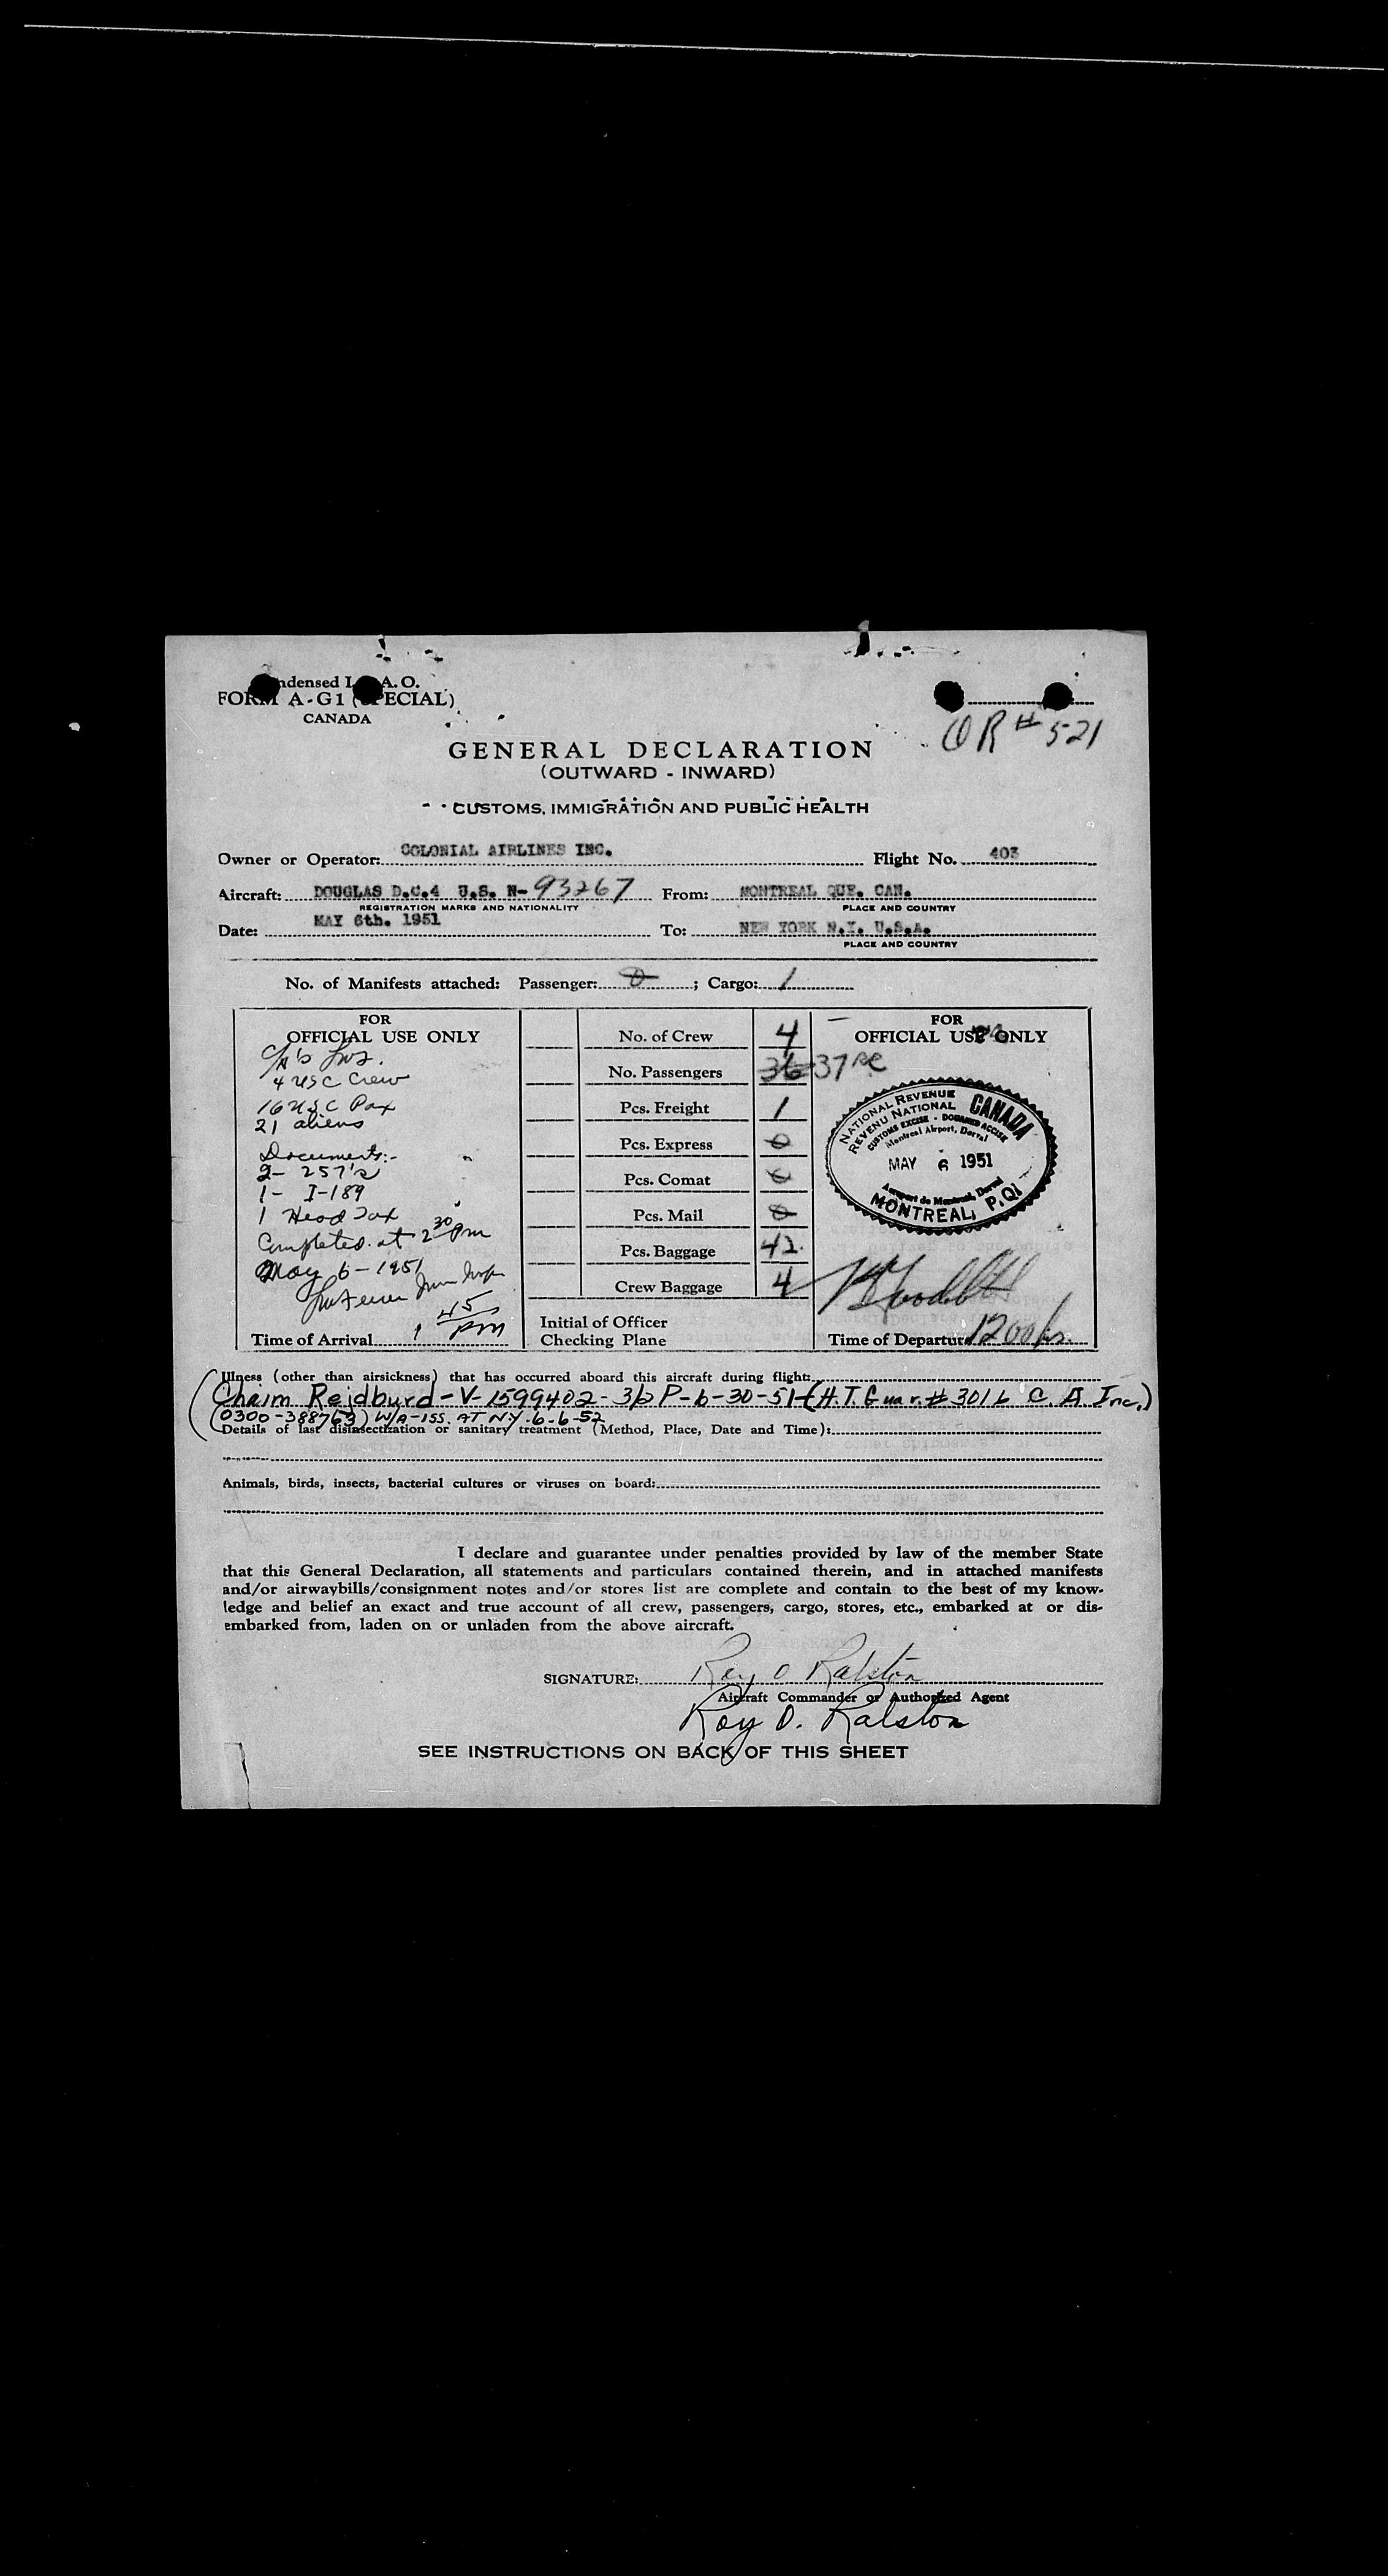 ndensed I. A. O.
FORM A - G 1 (SPECIAL)
CANADA
OR # 521
GENERAL DECLARATION
(OUTWARD - INWARD)
CUSTOMS, IMMIGRATION AND PUBLIC HEALTH
Owner or Operator: COLONIAL AIRLINES INC. Flight No. 403
Aircraft: DOUGLAS D.C.4 U.S. N- 93267 From: MONTREAL QUE. CAN.
REGISTRATION MARKS AND NATIONALITY PLACE AND COUNTRY
Date: MAY 6th. 1951 To: NEW YORK N.Y. U.S.A.
PLACE AND COUNTRY
No. of Manifests attached: Passenger: 0 ; Cargo: 1
FOR
OFFICIAL USE ONLY
4 USC Crew
16 USC Pax
21 aliens
Documents:-
2- 257's
1- I-189
1 Head Tax
Completed at 2 30 pm
May 6-1951
Time of Arrival 1 45 pm
No. of Crew 4
No. Passengers 36 37
Pcs. Freight 1
Pcs. Express 0
Pcs. Comat 0
Pcs. Mail 0
Pcs. Baggage 42
Crew Baggage 4
Initial of Officer
Checking Plane
FOR
OFFICIAL USE ONLY
NATIONAL REVENUE
REVENU NATIONAL
CANADA
CUSTOMS EXCISE - DOUANES ACCISE
Montreal Airport, Dorval
MAY 6 1951
Aeroport de Montreal, Dorval
MONTREAL, P.Q.
Time of Departure 1200 hs.
Illness (other than airsickness) that has occurred aboard this aircraft during flight:
(Chaim Rejdburd - V-1599402 - 3(2) P-6-30-51-(H.T. Guar. # 3016 C. A. Inc.)
(0300-388763) W/A-ISS. AT N.Y. 6-6-52
Details of last disinsectization or sanitary treatment (Method, Place, Date and Time):
Animals, birds, insects, bacterial cultures or viruses on board:
I declare and guarantee under penalties provided by law of the member State
that this General Declaration, all statements and particulars contained therein, and in attached manifests
and/or airwaybills/consignment notes and/or stores list are complete and contain to the best of my know-
ledge and belief an exact and true account of all crew, passengers, cargo, stores, etc., embarked at or dis-
embarked from, laden on or unladen from the above aircraft.
SIGNATURE: Roy O Ralston
Aircraft Commander or Authorized Agent
Roy O. Ralston
SEE INSTRUCTIONS ON BACK OF THIS SHEET